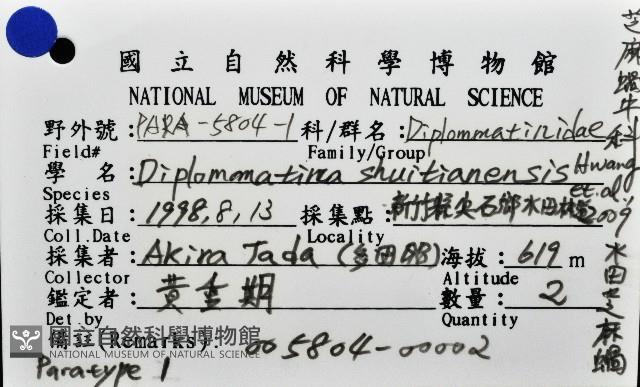 國立自然科學博物館
NATIONAL MUSEUM OF NATURAL SCIENCE
野外號：PARA-5804-1 科/群名：Diplommatinidae
Field# Family/Group
學 名：Diplommatina shuitianensis Hwang et.al. 2009
Species
採集日：1998,8,13 採集點：新竹縣尖石鄉水田林道
Coll.Date Locality
採集者：Akira Tada (多田昭) 海拔：619 m
Collector Altitude
鑑定者：黃重期 數量：2
Det.by Quantity
備註(Remarks): 005804-00002
Paratype 1
芝麻蝸牛科 水田芝麻蝸
國立自然科學博物館
NATIONAL MUSEUM OF NATURAL SCIENCE